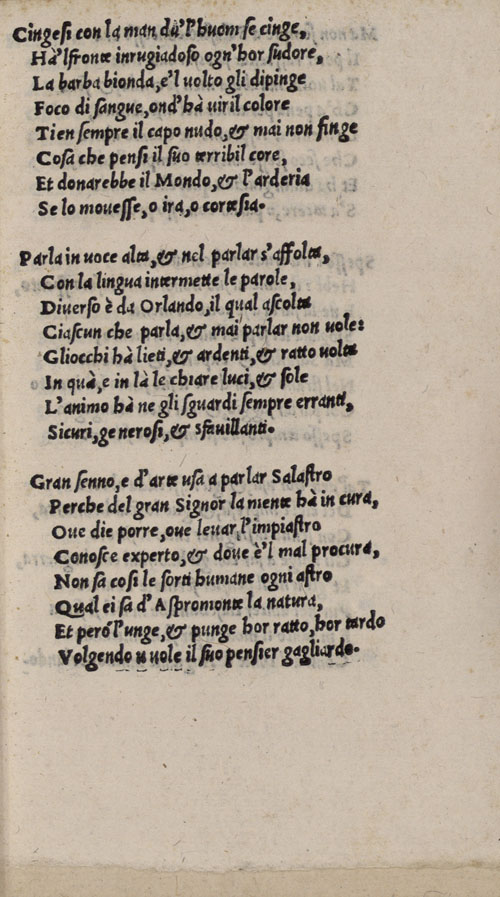 Cingesi con la man dů'l'huom se cinge,
Hà'lfronte inrugiadoso ogn'hor sudore,
La barba bionda, e'l uolto gli dipinge
Foco di sangue, ond'hà uiril colore
Tien sempre il capo nudo, & mai non finge
Cosa che pensi il suo terribil core,
Et donarebbe il Mondo, & l'arderia
Se lo mouesse, o ira, o cortesia.
Parla in uoce alta, & nel parlar s'affolta,
Con la lingua intermette le parole,
Diuerso è da Orlando, il qual ascolta
Ciascun che parla, & mai parlar non uole:
Gliocchi hà lieti, & ardenti, & ratto uolta
In quà, e in là le chiare luci, & sole
L'animo hà ne gli sguardi sempre erranti,
Sicuri, ge nerosi, & sfauillanti.
Gran senno, e d'arte usa a parlar Salastro
Perche del gran Signor la mente hà in cura,
Oue die porre, oue leuar l'impiastro
Conosce experto, & doue è'l mal procura,
Non sa cosi le sorti humane ogni astro
Qual ei sa d'Aspromonte la natura,
Et però l'unge, & punge hor ratto, hor tardo
Volgendo u uole il suo pensier gagliardo.